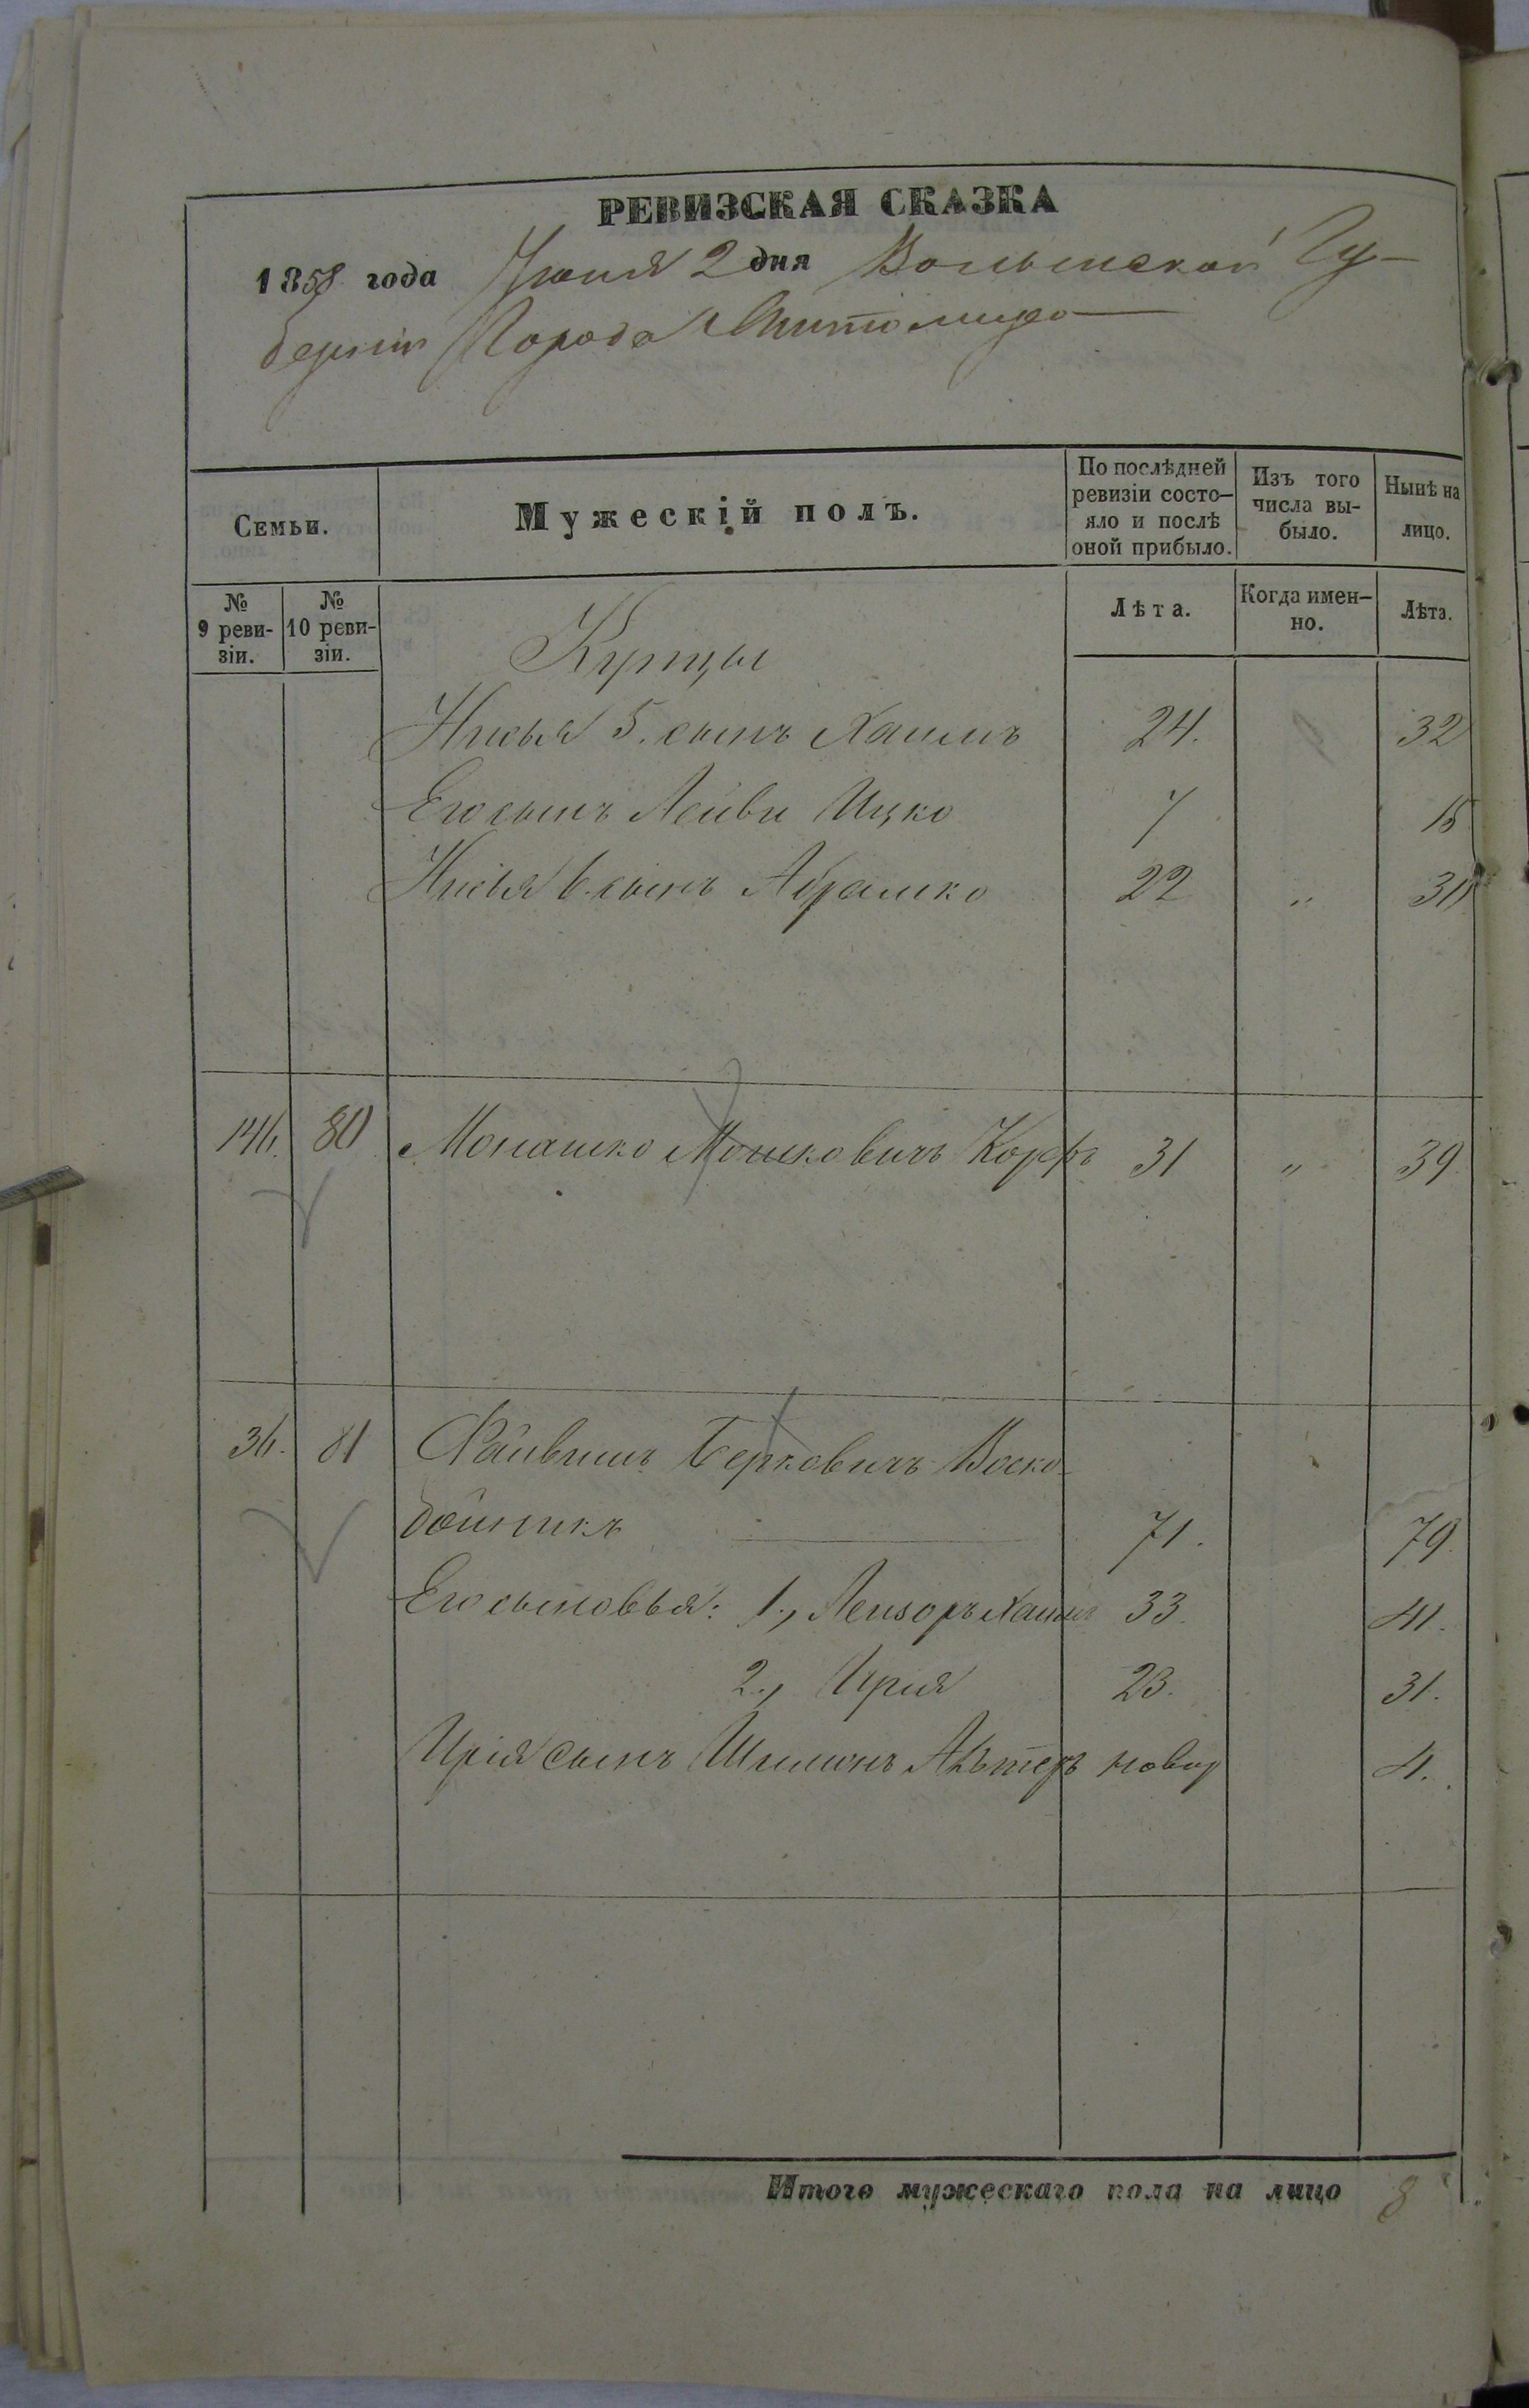 РЕВИЗСКАЯ СКАЗКА
1858 года Іюня 2 дня Волынской Гу-
берніи Города Житомира
Семьи.
Мужескій полъ.
По послѣдней ревизіи состо-яло и послѣ оной прибыло.
Изъ того числа вы-было.
Нынѣ на лицо.
№ 9 реви-зіи.
№ 10 реви-зіи.
Лѣта.
Когда имен-но.
Лѣта.
Купцы
5. сынъ Хаимъ 24. 32
Его сынъ Лейви Ицко 7 15
6. сынъ Абрамко 22 " 30
146. 80 Монашко Мошковичъ Корфъ 31 " 39.
36. 81 Файвишъ Берковичъ Воско-
бойникъ 71. 79.
Его сыновья: 1., Лейзоръ Хаимъ 33. 41.
2., Ирія 23. 31.
Ирія сынъ Шлиомъ Альтеръ новор 4.
Итого мужескаго пола на лицо 8